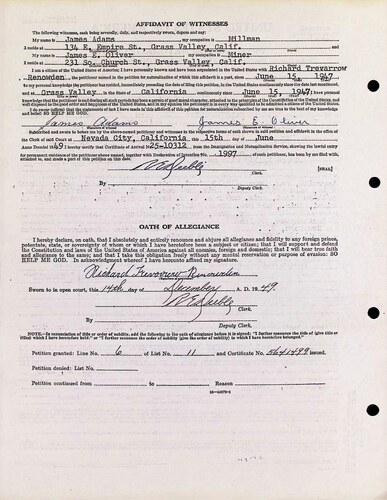 AFFIDAVIT OF WITNESSES
The following witnesses, each being severally, duly, and respectively sworn, depose and say:
My name is James Adams my occupation is Millman
I reside at 134 E. Empire St., Grass Valley, Calif. and
My name is James E. Oliver my occupation is Miner
I reside at 231 So. Church St., Grass Valley, Calif.
I am a citizen of the United States of America; I have personally known and have been acquainted in the United States with Richard Trevarrow
Renowden, the petitioner named in the petition for naturalization of which this affidavit is a part, since June 15, 1947
to my personal knowledge the petitioner has resided, immediately preceding the date of filing this petition, in the United States continuously since the date last mentioned,
and at Grass Valley, in the State of California continuously since June 15, 1947, and I have personal
knowledge that the petitioner is and during all such periods has been a person of good moral character, attached to the principles of the Constitution of the United States, and well
disposed to the good order and happiness of the United States, and in my opinion the petitioner is in every way qualified to be admitted a citizen of the United States.
I do swear (affirm) that the statements of fact I have made in this affidavit of this petition for naturalization subscribed by me are true to the best of my knowledge
and belief: SO HELP ME GOD.
James Adams James E. Oliver
Subscribed and sworn to before me by the above-named petitioner and witnesses in the respective forms of oath shown in said petition and affidavit in the office of
the Clerk of said Court at Nevada City, California this 15th day of June,
Anno Domini 1949. I hereby certify that Certificate of Arrival No. 25-10312 from the Immigration and Naturalization Service, showing the lawful entry
for permanent residence of the petitioner above named, together with Declaration of Intention No. 1997 of such petitioner, has been by me filed with,
attached to, and made a part of this petition on this date.
Clerk. [SEAL]
By
Deputy Clerk.
OATH OF ALLEGIANCE
I hereby declare, on oath, that I absolutely and entirely renounce and abjure all allegiance and fidelity to any foreign prince,
potentate, state, or sovereignty of whom or which I have heretofore been a subject or citizen; that I will support and defend
the Constitution and laws of the United States of America against all enemies, foreign and domestic; that I will bear true faith
and allegiance to the same; and that I take this obligation freely without any mental reservation or purpose of evasion: SO
HELP ME GOD. In acknowledgment whereof I have hereunto affixed my signature.
Richard Trevarrow Renowden
Sworn to in open court, this 14th day of December, A. D. 1949.
Clerk.
By
Deputy Clerk.
NOTE.—In renunciation of title or order of nobility, add the following to the oath of allegiance before it is signed: "I further renounce the title of (give title or
titles) which I have heretofore held," or "I further renounce the order of nobility (give the order of nobility) to which I have heretofore belonged."
Petition granted: Line No. 6 of List No. 11 and Certificate No. 5641499 issued.
Petition denied: List No.
Petition continued from to Reason